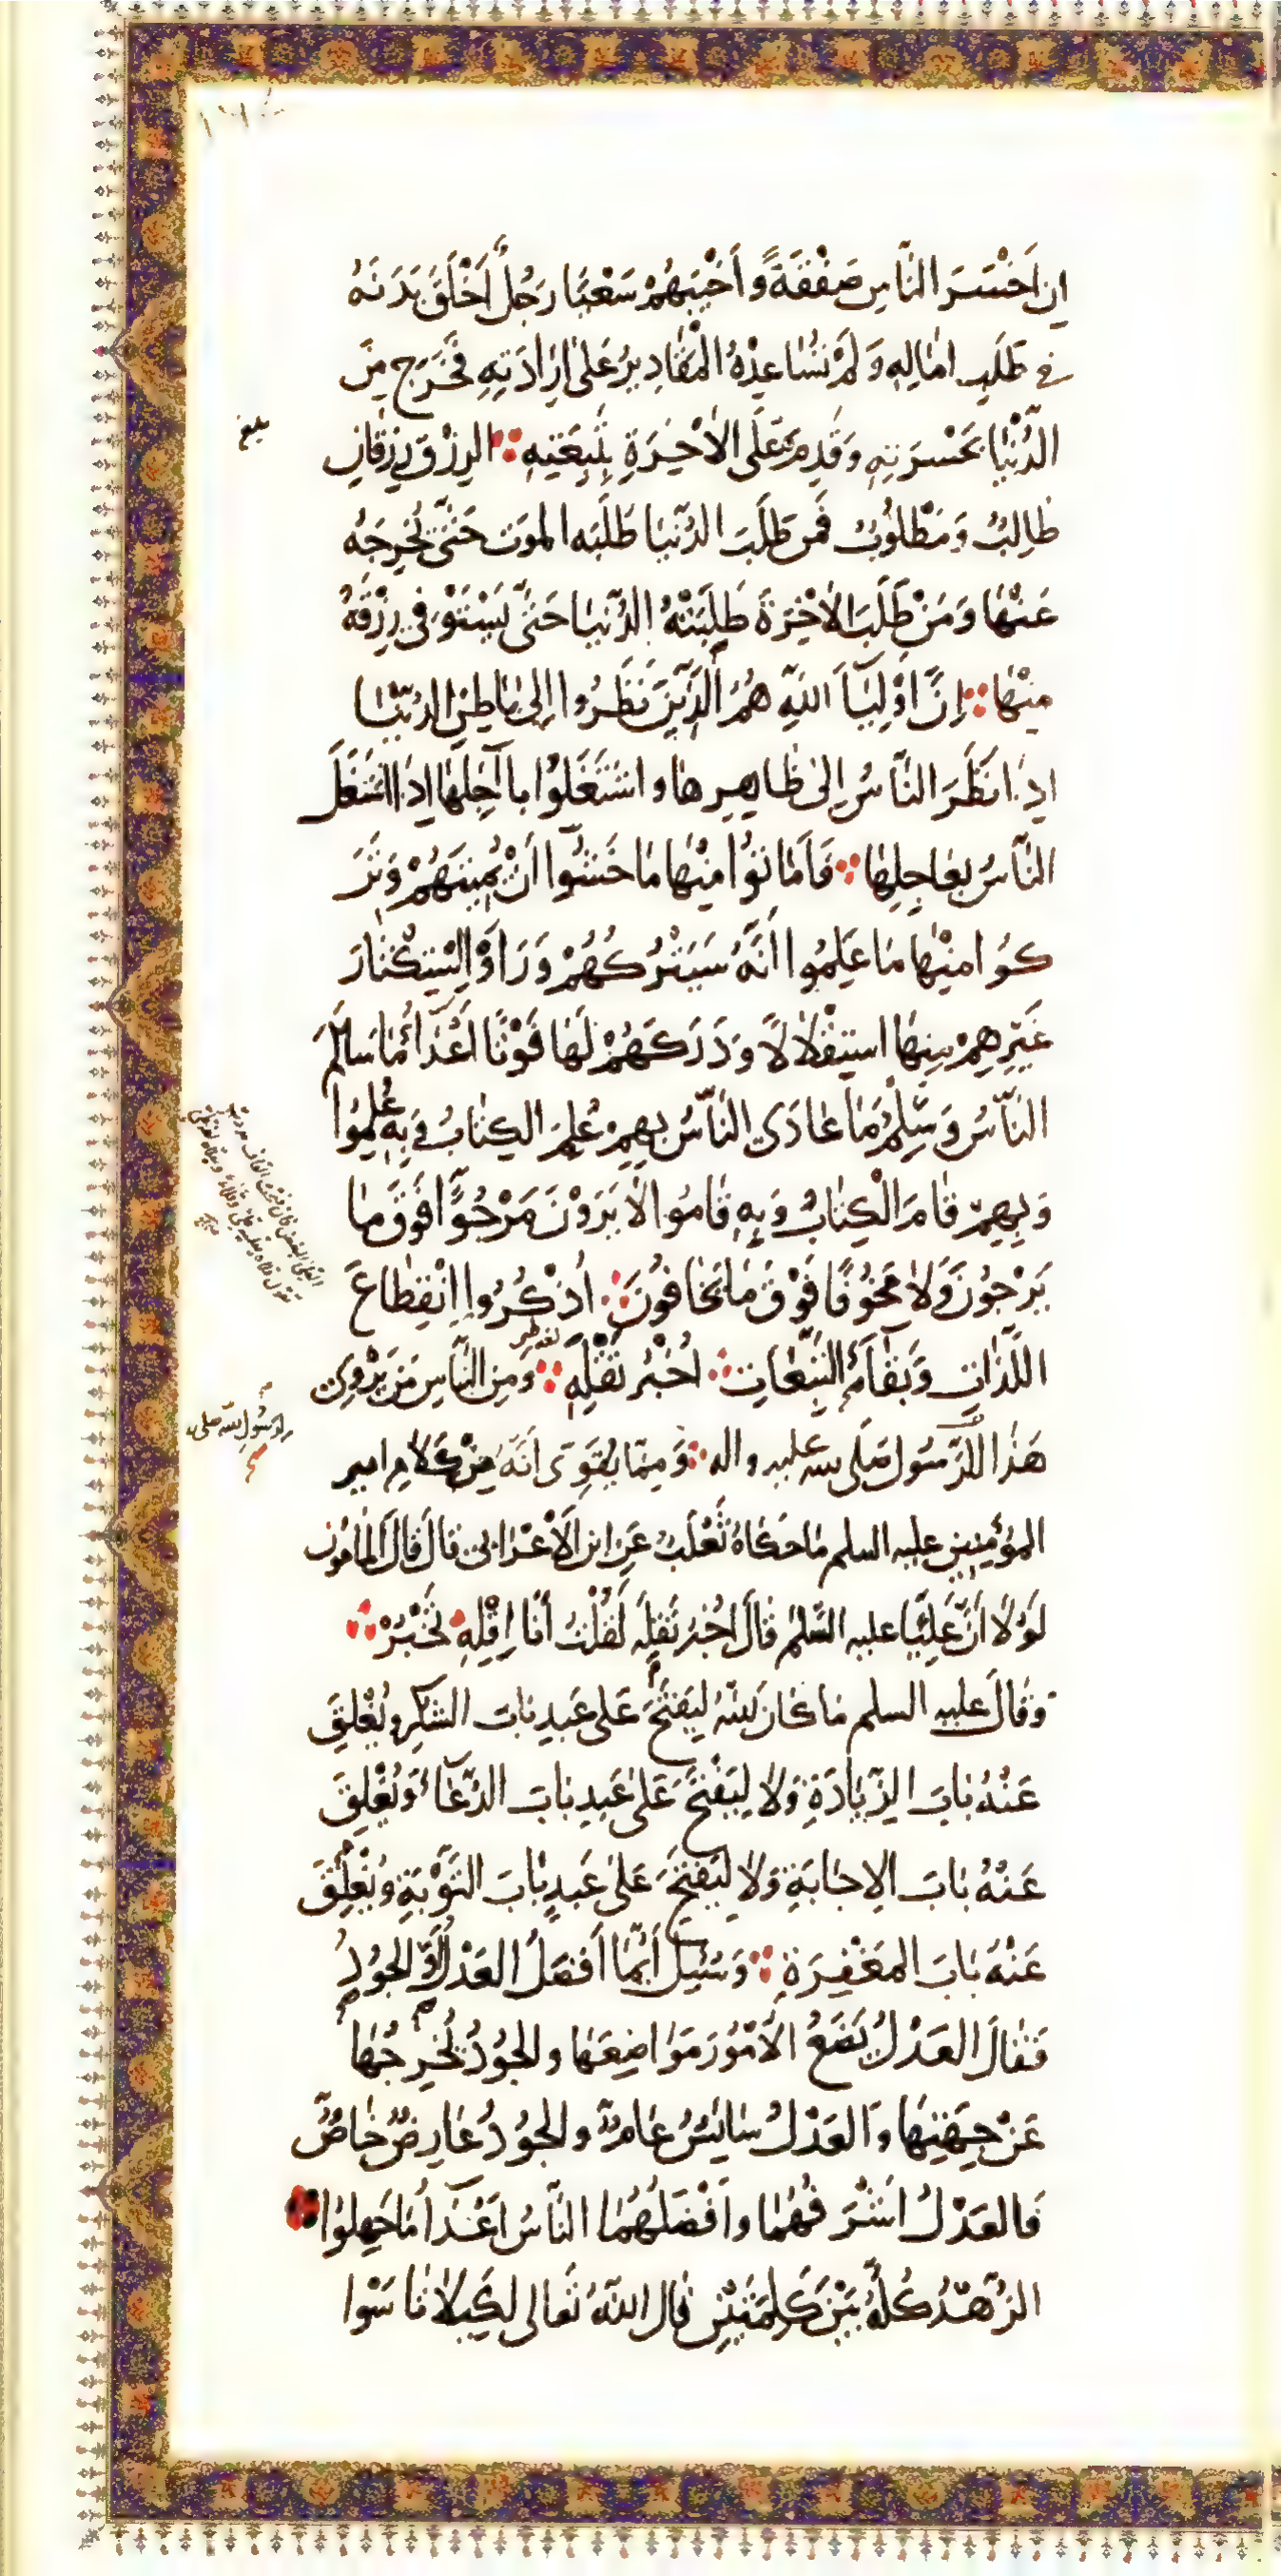 ان اَخْسَرَ النّاسِ صَفْقَةً وَ اَخْيَبَهُمْ سَعْيًا رَجُلٌ اَخْلَقَ بَدَنَهُ
في طَلَبِ امَالِهِ وَلَمْ تُسَاعِدْهُ الْمَقَادِيرُ عَلى اِرَادَتِهِ فَخَرَجَ مِنَ
الدُّنْيَا بِحَسْرَتِهِ وَقَدِمَ عَلَى الاخِرَةِ بِتَبِعَتِهِ الرِزْقُ رِزْقَانِ
طَالِبٌ وَمَطْلُوبٌ فَمَن طَلَبَ الدُّنْيَا طَلَبَه الموَت حَتّى يُخْرِجَهُ
عَنْهَا وَمَنْ طَلَبَ الاخِرَةَ طَلِبَتْهُ الدُّنيَا حَتّى يَسْتَوْفِى رِزْقَهُ
مِنْهَا اِنَّ اَوْلِيَآ اللهِ هُمُ الَّذِيْنَ نَظَرُوا اِلى بَاطِنِ الدُنْيَا
اِذَا نَظَرَ النَّاسُ اِلى ظَاهِرِهَا و اشتَغَلُوْا بِاآجِلِهَا اِذَا اشْتَغَلَ
النّاسُ بِعَاجِلِهَا فَاَمَاتوُا مِنْهَا مَا خَشُوا اَنْ يُمِيتَهُمْ وَتَرَ
كوُا مِنْهَا مَا عَلِمُوا اَنَّهُ سَيَتْرُكُهُمْ وَرَاَوْ اِسْتِكْثَارَ
غَيْرِهِمْ مِنهَا استِقْلالاً وَدَرَكَهُمْ لَهَا فَوْتًا اَعْدَآءُ مَا سَالَمَ
النَّاسُ وَسِلْمُ مَا عَادَى النّاسُ بِهِمْ عُلِمَ الكِتَابُ وَبِهِ عُلِمُوْا
وَبِهِمْ قَامَ الْكِتابُ وَبِهِ قَامُوا لا يَرَوْنَ مَرْجُوًّا فَوَقَ مَا
يَرْجُونَ وَلا مَخوُفًا فَوْقَ مَا يَخَافُونَ اُذْكُرُوا اِنْقِطَاعَ
اللَّذَاتِ وَبَقَآءَ التَّبِعَاتِ اُخْبُرْ تَقْلِهِ وَمِن النّاسِ مَن يَرْوِى
هَذا لِلرَّسُول صَلى الله عليه واله وَ مِمّا يُقَوِى اَنَّهُ مِنْ كَلامِ امير
المؤمِنِين عليه السلم مَا حَكَاهُ ثَعْلَبٌ عَنِ ابن الاَعْرَابى قالَ قَالَ المَامُون
لَوْلا اَنّ عَلِيًّا عليه السَّلم قَالَ اُخْبُر تَقْلِهِ لَقُلْتُ اَنَا اِقْلِهِ تَخْبُرْ
وَقَالَ عليه السلم مَا كَان الله لِيَفتَحَ عَلى عَبدٍ بَابَ الشكرِ ويُغْلِقَ
عَنْهُ بَابَ الزّيَادَةِ وَلا لِيَفْتَحَ عَلى عَبدٍ بَابَ الدّعَآءِ وَيُغْلِقَ
عَنْهُ بَابَ الاِجَابَةِ وَلا لِيَفْتَحَ عَلى عَبدٍ بَابَ التَوْبَةِ وَيُغْلِقَ
عَنْهُ بَابَ المَغْفِرَةِ وَسُئِلَ اَيّمَا اَفضَلُ العَدْلُ اَوِ الجوُدُ
فَقَالَ العَدْلُ يَضَعُ الاُمُوْرَ مَوَاضِعَهَا والجوُدُ يُخرِجُهَا
عَنْ جِهَتِهَا وَالعَدْلُ سَايِسٌ عَامٌّ والجوُدُ عَارِضٌ خَاصٌّ
فَالعَدْلُ اَشرَفُهُمَا وَاَفْضَلُهُمَا النّاسُ اَعْدَآءُ مَا جَهِلوُا
الزُهْدُ كُلُّهُ بَيْنَ كَلِمَتَيْنِ قَال اللهُ تَعَالى لِكَيلا تَاسَوْا
بلغ
لرسُولِ الله صلى